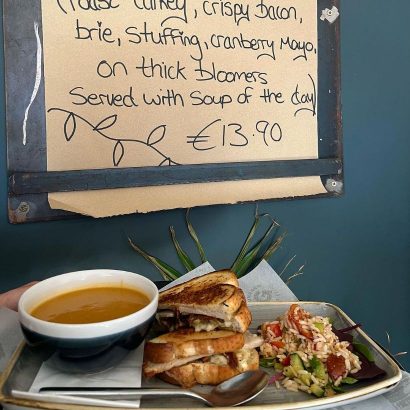 (roast turkey, crispy bacon,
brie, stuffing, cranberry mayo,
on thick bloomers
Served with Soup of the day)
€13.90